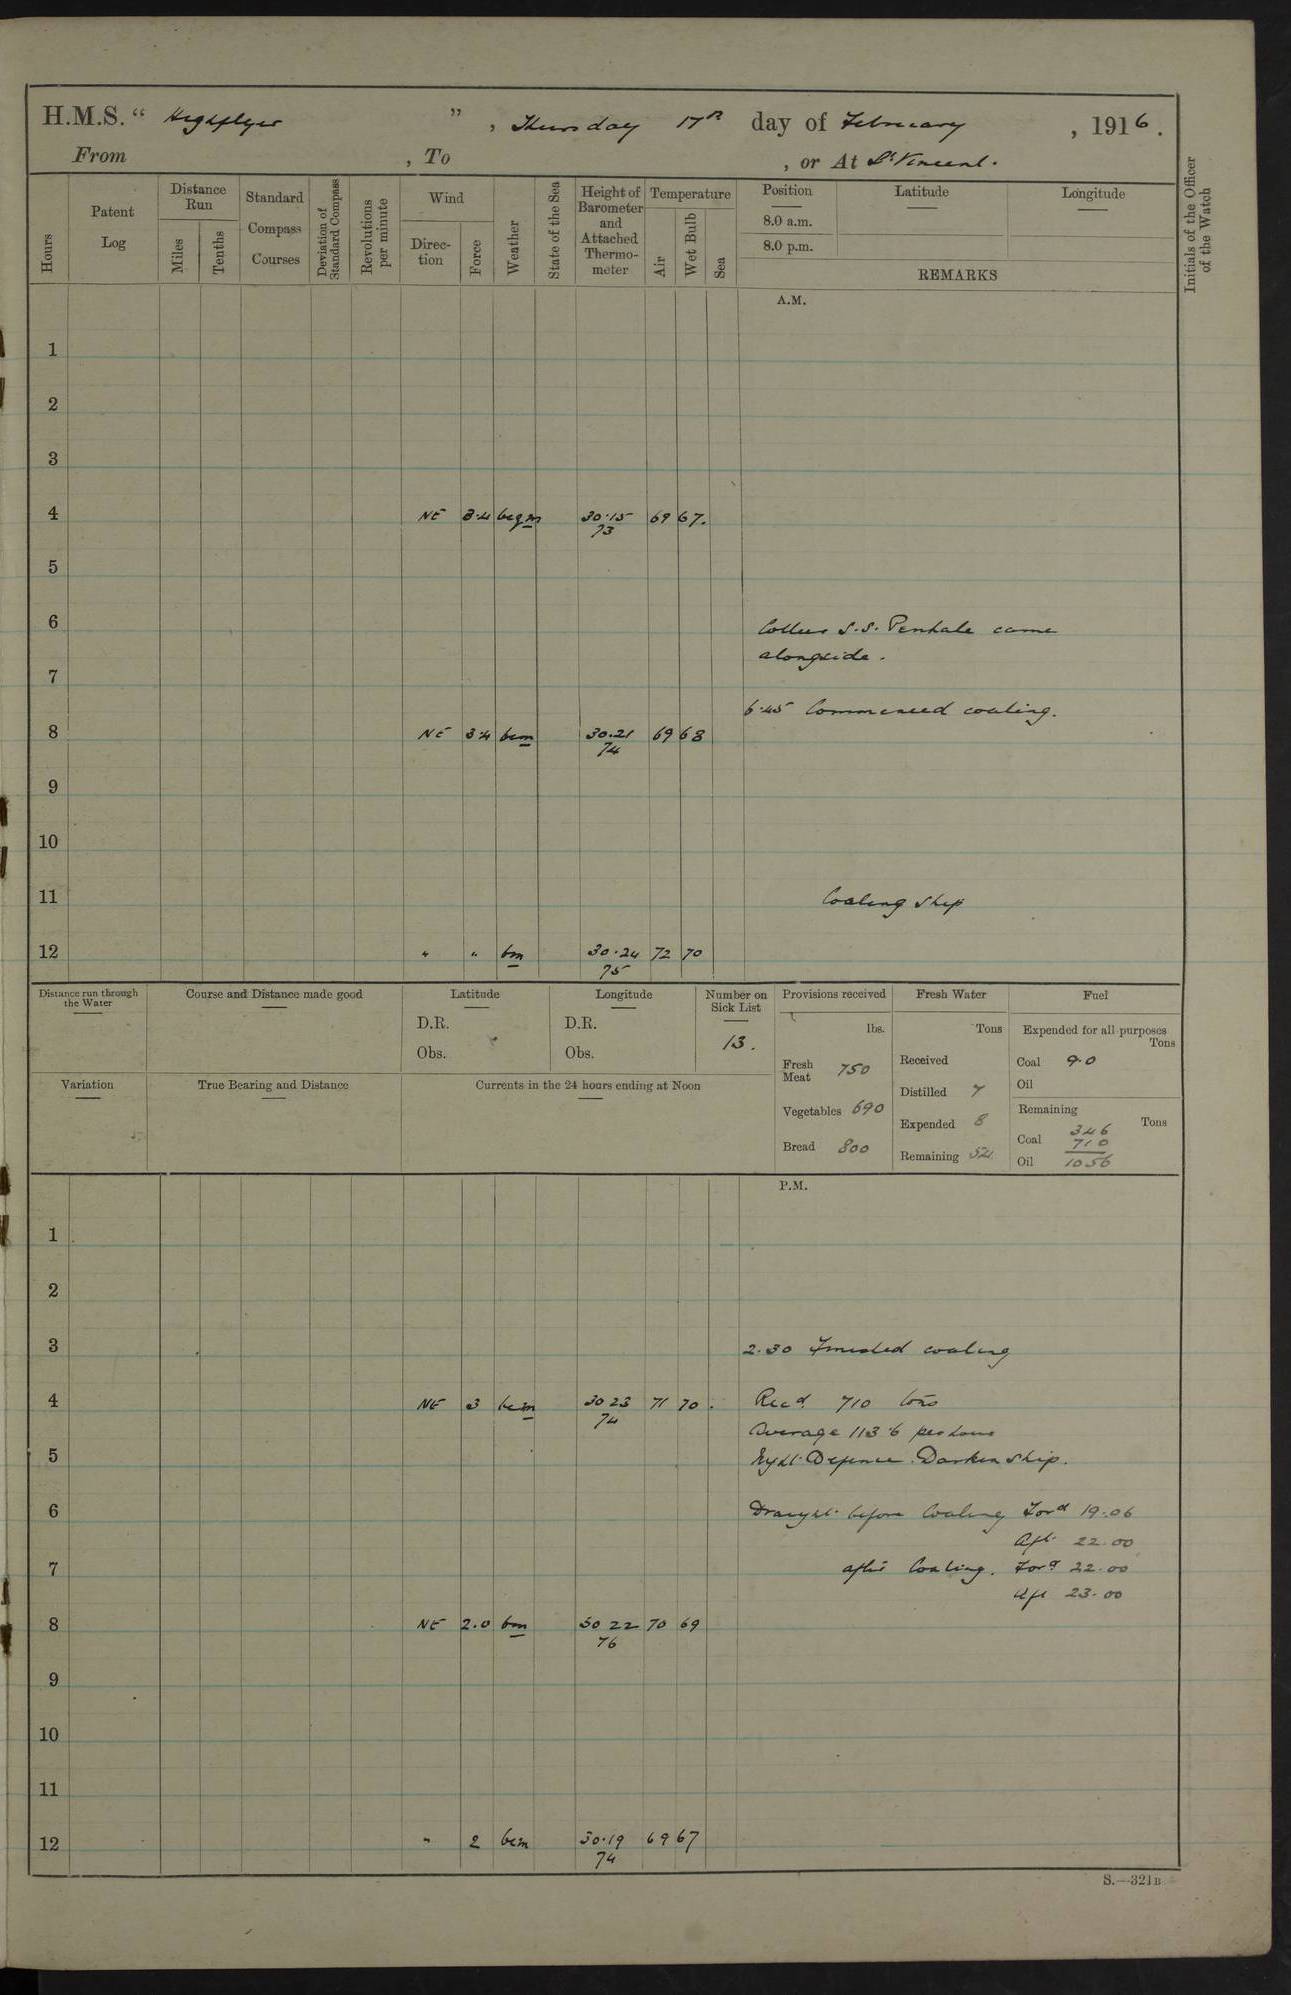 H.M.S. " Highflyer " , Thursday 17th day of February , 1916 .
From , To , or At St Vincent.
Hours
Patent Log
Distance Run
Miles
Tenths
Standard Compass Courses
Deviation of Standard Compass
Revolutions per minute
Wind
Direc-tion
Force
Weather
State of the Sea
Height of Barometer and Attached Thermo-meter
Temperature
Air
Wet Bulb
Sea
Position
8.0 a.m.
8.0 p.m.
Latitude
Longitude
REMARKS
Initials of the Officer of the Watch
A.M.
1
2
3
4 NE 3.4 bcqm 30.15 69 67.
73
5
6 Collier S.S. Penhale came
alongside.
7
6.45 Commenced coaling.
8 NE 3.4 bcm 30.21 69 68
74
9
10
11 Coaling Ship
12 " " bm 30.24 72 70
75
Distance run through the Water
Course and Distance made good
Latitude
D.R.
Obs.
Longitude
D.R.
Obs.
Number on Sick List
13.
Provisions received
lbs.
Fresh Meat 750
Vegetables 690
Bread 800
Fresh Water
Tons
Received
Distilled 7
Expended 8
Remaining 52
Fuel
Expended for all purposes
Tons
Coal 9.0
Oil
Remaining
Tons
346
Coal 710
Oil 1056
Variation
True Bearing and Distance
Currents in the 24 hours ending at Noon
P.M.
1
2
3 2.30 Finished coaling
4 NE 3 bcm 30 23 71 70 . Recd. 710 tons
74
Average 113.6 per hour
5 Night Defence. Darken Ship.
6 Draught before Coaling Ford 19.06
Aft 22.00
7 after Coaling. Ford 22.00
Aft 23.00
8 NE 2.0 bm 30 22 70 69
76
9
10
11
12 " 2 bcm 30.19 69 67
74
S.—321B